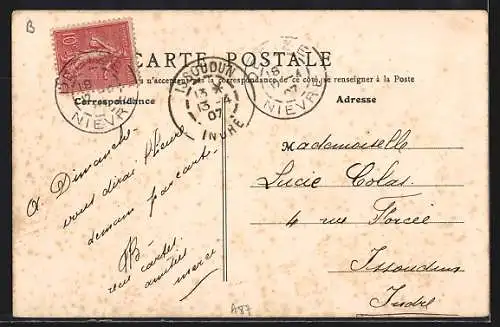 B
CARTE POSTALE
s n'acceptent pas la correspondance de ce côté, se renseigner à la Poste
Correspondance
Adresse
ISSOUDUN
13 *
13 -4
07
INDRE
NIEVRE
NIEVRE
07
10
A Dimanche
vous dirai l'heure
demain par carte
reçu cartes
amitiés
merci
Mademoiselle
Lucie Colas
4 rue Porcée
Issoudun
Indre
A87